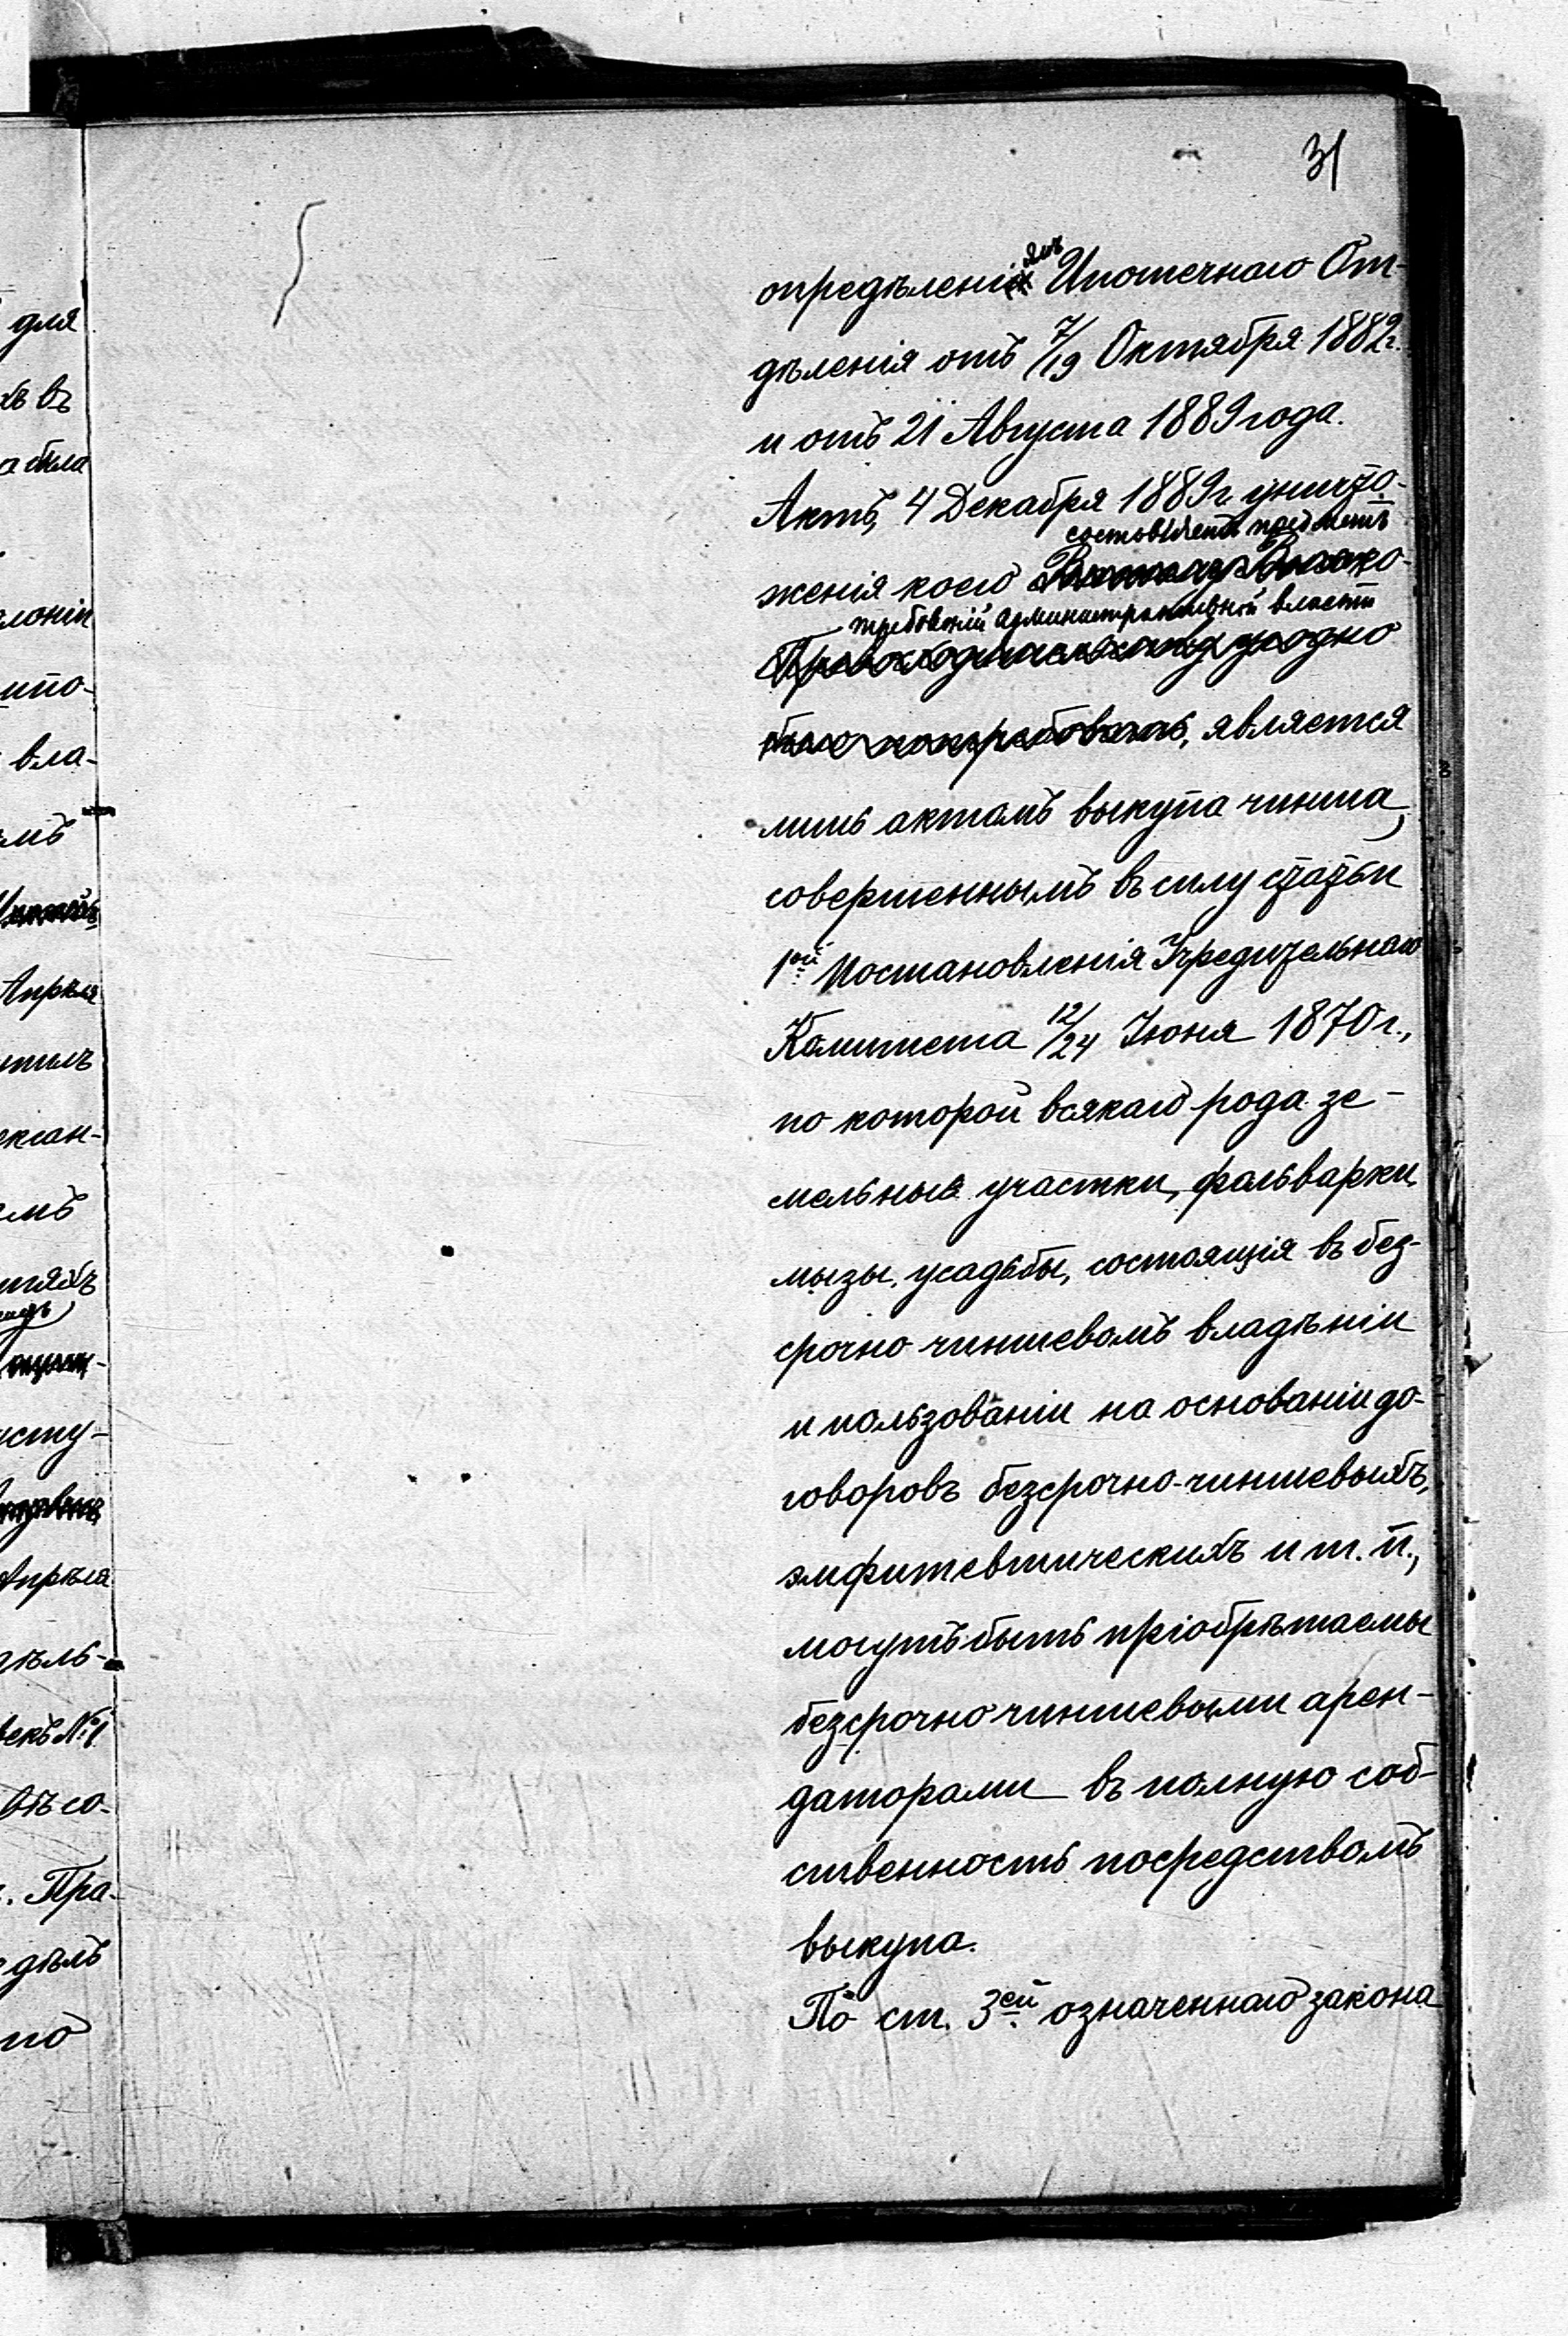 31
опредѣленіямъ Ипотечнаго От-
дѣленія отъ 7/19 Октября 1882 г.
и отъ 21 Августа 1889 года.
Актъ, 4 Декабря 1889 г. уничто-
составляетъ предметъ
женія коего Вашему Высоко-
требованій административной власти
Превосходительству угодно
было потребовать, является
лишь актомъ выкупа чинша,
совершеннымъ въ силу статьи
1ой Постановленія Учредительнаго
Комитета 12/24 Іюня 1870 г.,
по которой всякаго рода зе-
мельные участки, фольварки,
мызы, усадьбы, состоящія въ без-
срочно чиншевомъ владѣніи
и пользованіи на основаніи до-
говоровъ безсрочно-чиншевыхъ,
эмфитевтическихъ и т. п.,
могутъ быть пріобрѣтаемы
безсрочно чиншевыми арен-
даторами въ полную соб-
ственность посредствомъ
выкупа.
По ст. 3ей означеннаго закона
для
хъ въ
а была
ипо-
вла-
омъ
Апрѣля
ексан-
емъ
усту-
Апрѣля
дѣль-
векъ № 1
Пра-
дѣлъ
по